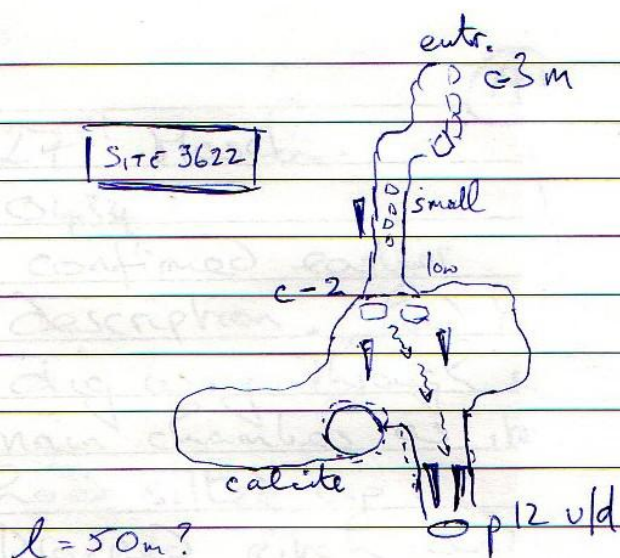 entr.
c-3m
SITE 3622
small
low
c-2
calcite
p12 u/d
l = 50m?